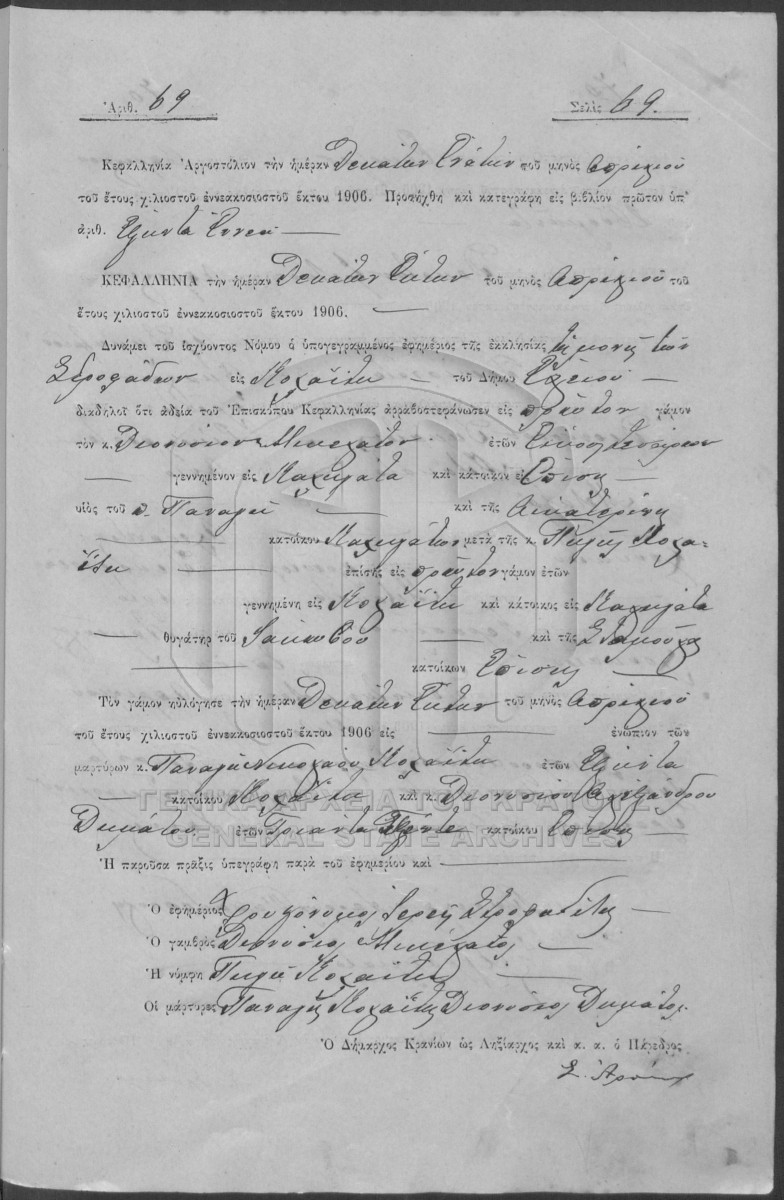 Ἀριθ. 69 Σελὶς 69.
Κεφαλληνία Ἀργοστόλιον τὴν ἡμέραν Δεκάτην Ἐνάτην τοῦ μηνὸς Ἀπριλίου
τοῦ ἔτους χιλιοστοῦ ἐννεακοσιοστοῦ ἕκτου 1906. Προσήχθη καὶ κατεγράφη εἰς βιβλίον πρῶτον ὑπ'
ἀριθ. Ἑξῆντα Ἐννέα
ΚΕΦΑΛΛΗΝΙΑ τὴν ἡμέραν Δεκάτην Ἕκτην τοῦ μηνὸς Ἀπριλίου τοῦ
ἔτους χιλιοστοῦ ἐννεακοσιοστοῦ ἕκτου 1906.
Δυνάμει τοῦ ἰσχύοντος Νόμου ὁ ὑπογεγραμμένος ἐφημέριος τῆς ἐκκλησίας τῆς μονῆς τῶν
Στροφάδων εἰς τοῦ Δήμου Ἐλειοῦ
διαδηλοῖ ὅτι ἀδείᾳ τοῦ Ἐπισκόπου Κεφαλληνίας ἀρραβοστεφάνωσεν εἰς πρῶτον γάμον
τὸν κ. Διονύσιον Μικελάτον ἐτῶν Εἴκοσι τεσσάρων
γεννημένον εἰς καὶ κάτοικον εἰς Ἐπίσης
υἱὸς τοῦ π. Παναγῆ καὶ τῆς Αἰκατερίνης
κατοίκου μετὰ τῆς κ. Πηγῆς
ἐπίσης εἰς πρῶτον γάμον ἐτῶν
γεννημένη εἰς καὶ κάτοικος εἰς
θυγάτηρ τοῦ Ἰακώβου καὶ τῆς Σταμούλας
κατοίκων Ἐπίσης
Τὸν γάμον ηὐλόγησε τὴν ἡμέραν Δεκάτην Ἕκτην τοῦ μηνὸς Ἀπριλίου
τοῦ ἔτους χιλιοστοῦ ἐννεακοσιοστοῦ ἕκτου 1906 εἰς ἐνώπιον τῶν
μαρτύρων κ. Παναγῆ Νικολάου ἐτῶν Ἑξῆντα
κατοίκου καὶ κ. Διονυσίου Ἀλεξάνδρου
Δεμάτου ἐτῶν Τριάντα Πέντε κατοίκου Ἐπίσης
Ἡ παροῦσα πρᾶξις ὑπεγράφη παρὰ τοῦ ἐφημερίου καὶ
Ὁ ἐφημέριος Χρυσόστομος Ἱερεὺς Στροφαδίτης
Ὁ γαμβρὸς Διονύσιος Μικελάτος
Ἡ νύμφη Πηγὴ
Οἱ μάρτυρες Παναγῆς Διονύσιος Δεμάτος.
Ὁ Δήμαρχος Κρανίων ὡς Ληξίαρχος καὶ α. α. ὁ Πάρεδρος
ΓΕΝΙΚΑ ΑΡΧΕΙΑ ΤΟΥ ΚΡΑΤΟΥΣ
GENERAL STATE ARCHIVES